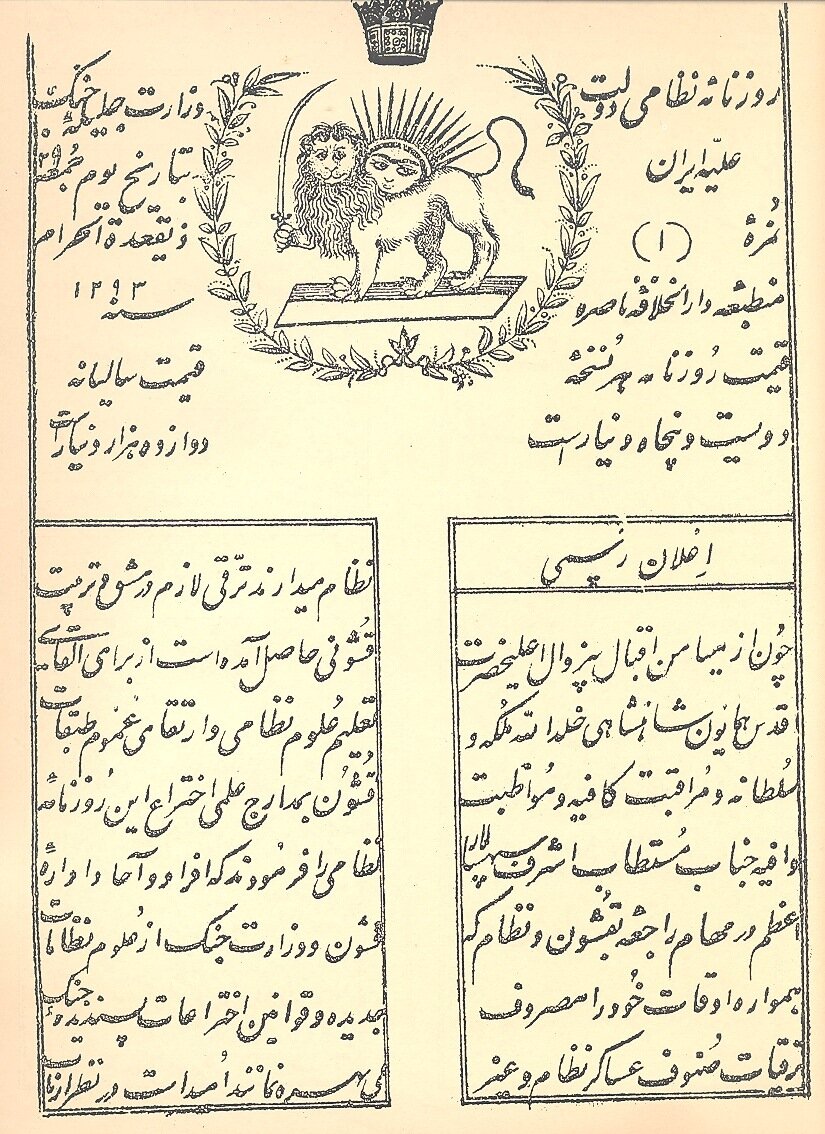 روزنامه نظامی دولت
علیّه ایران
نُمرهٔ (۱)
منطبعه دارالخلافهٔ ناصره
قیمت رُوزنامه هر نُسخهٔ
دویست و پنجاه دینار است
وزارت جلیلهٔ جنگ
بتاریخ یوم جُمعه ۲۹
ذیقعدة الحرام
سنه ۱۲۹۳
قیمت سالیانه
دوازده هزار دینار است
اِعلان رسمی
چُون از میامن اقبال بیزوال اعلیحضرت
قدس همایون شاهنشاهی خلدالله ملکه و
سُلطانه و مُراقبت کافیه و مُواظبت
وافیه جناب مُستطاب اشرف سپهسالار
اعظم در مهام راجعه بقشون و نظام که
همواره اوقات خُود را مصروف
ترقیات صُنوف عساکر نظام و غیر
نظام میدارند ترّقی لازم در مشق و تربیت
قُشونی حاصل آمده است از برای القای
تعلیم عُلوم نظامی و ارتقای عُموم طبقات
قُشُون بمدارج علمی اختراع این رُوزنامهٔ
نظامی را فرمُودند که افراد و آحاد ادارهٔ
قشون و وزارت جنگ از عُلوم و نظامات
جدیده و قوانین و اختراعات پسندیدهٔ جنگ
بی بهره نمانند اُمید است در نظر ارباب